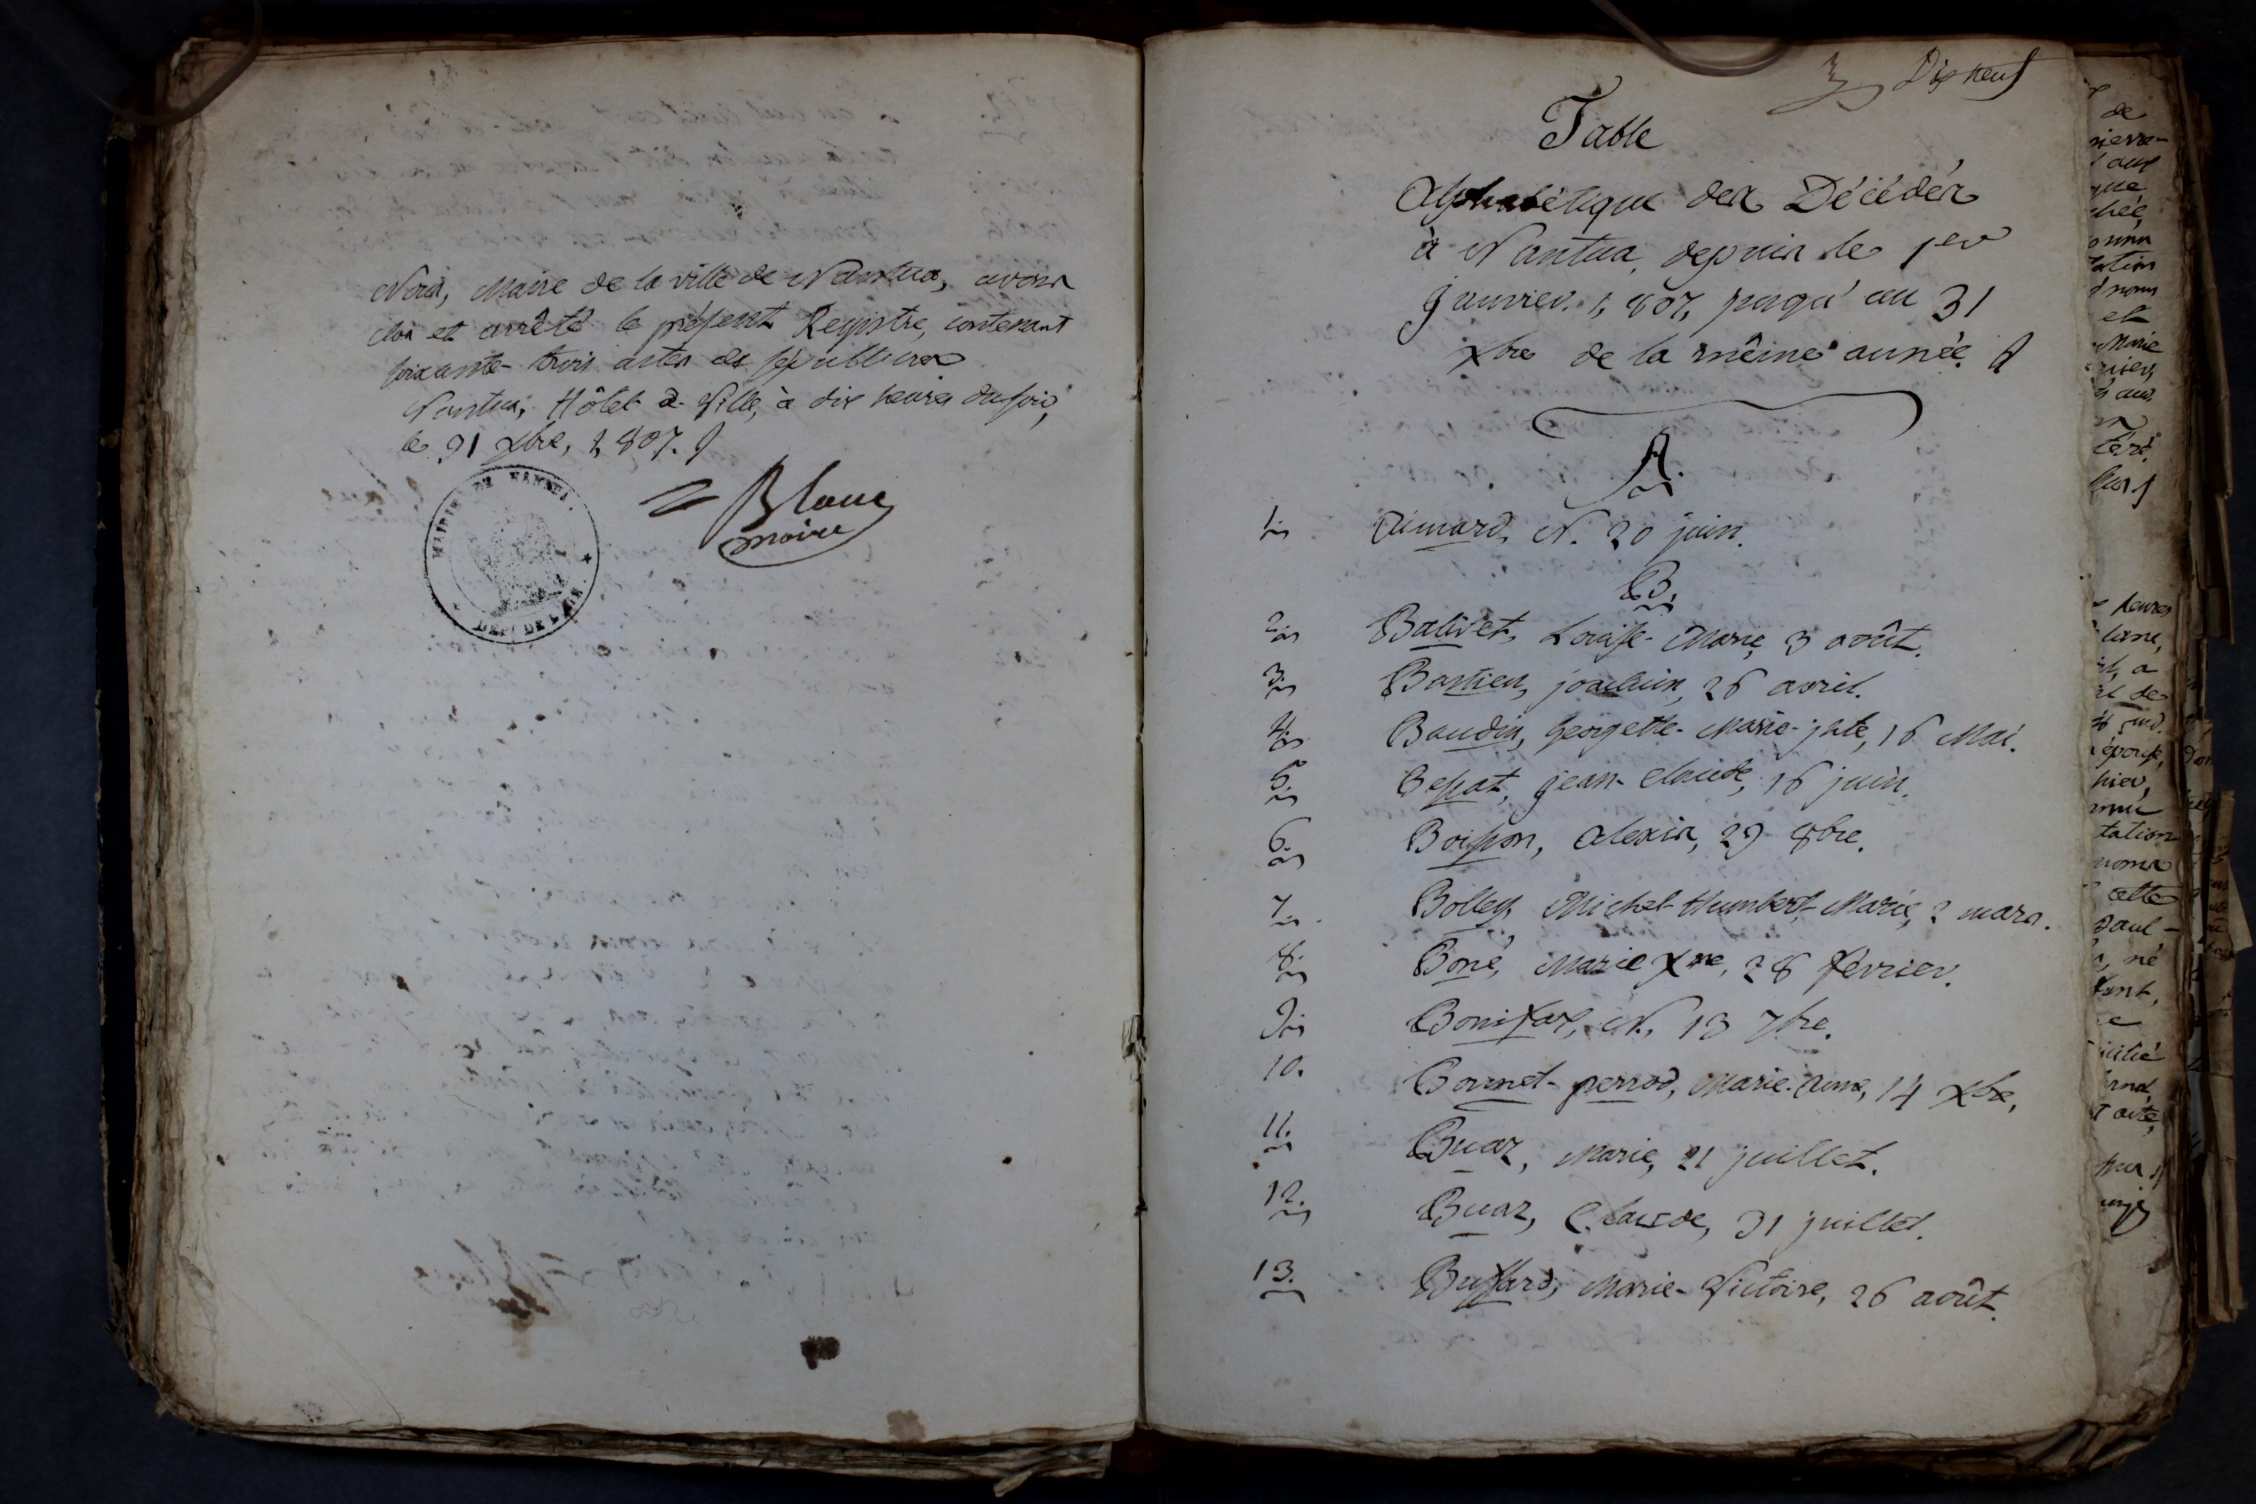 Nous, Maire de la ville de Nantua, avons
clos et arrêté le présent Registre, contenant
soixante-trois actes de sépultures
Nantua, Hôtel de Ville, à dix heures du soir,
le 31 xbre, 1807.
Blanc
maire
MAIRIE DE NANTUA
DEPT DE L'AIN
Dix neuf
Table
Alphabétique des Décédés
à Nantua, depuis le 1er
Janvier 1,807, jusqu'au 31
xbre de la même année.
A.
1. Aimard, N. 20 juin.
B.
2. Balivet, Louise-Marie, 3 août.
3. Bastien, joachim, 26 avril.
4. Baudin, Georgette-Marie-jhte, 16 Mai.
5. Bessat, jean-Claude, 16 juin.
6. Boisson, Alexis, 29 8bre.
7. Bolley, Michel-Humbert-Marie, 2 mars.
8. Boné, Marie Xne, 28 février.
9. Bonifax, N., 13 7bre.
10. Bonnet-perrod, Marie-Anne, 14 xbre,
11. Buaz, Marie, 21 juillet.
12. Buaz, Claude, 31 juillet.
13. Buffard, Marie-Victoire, 26 août.